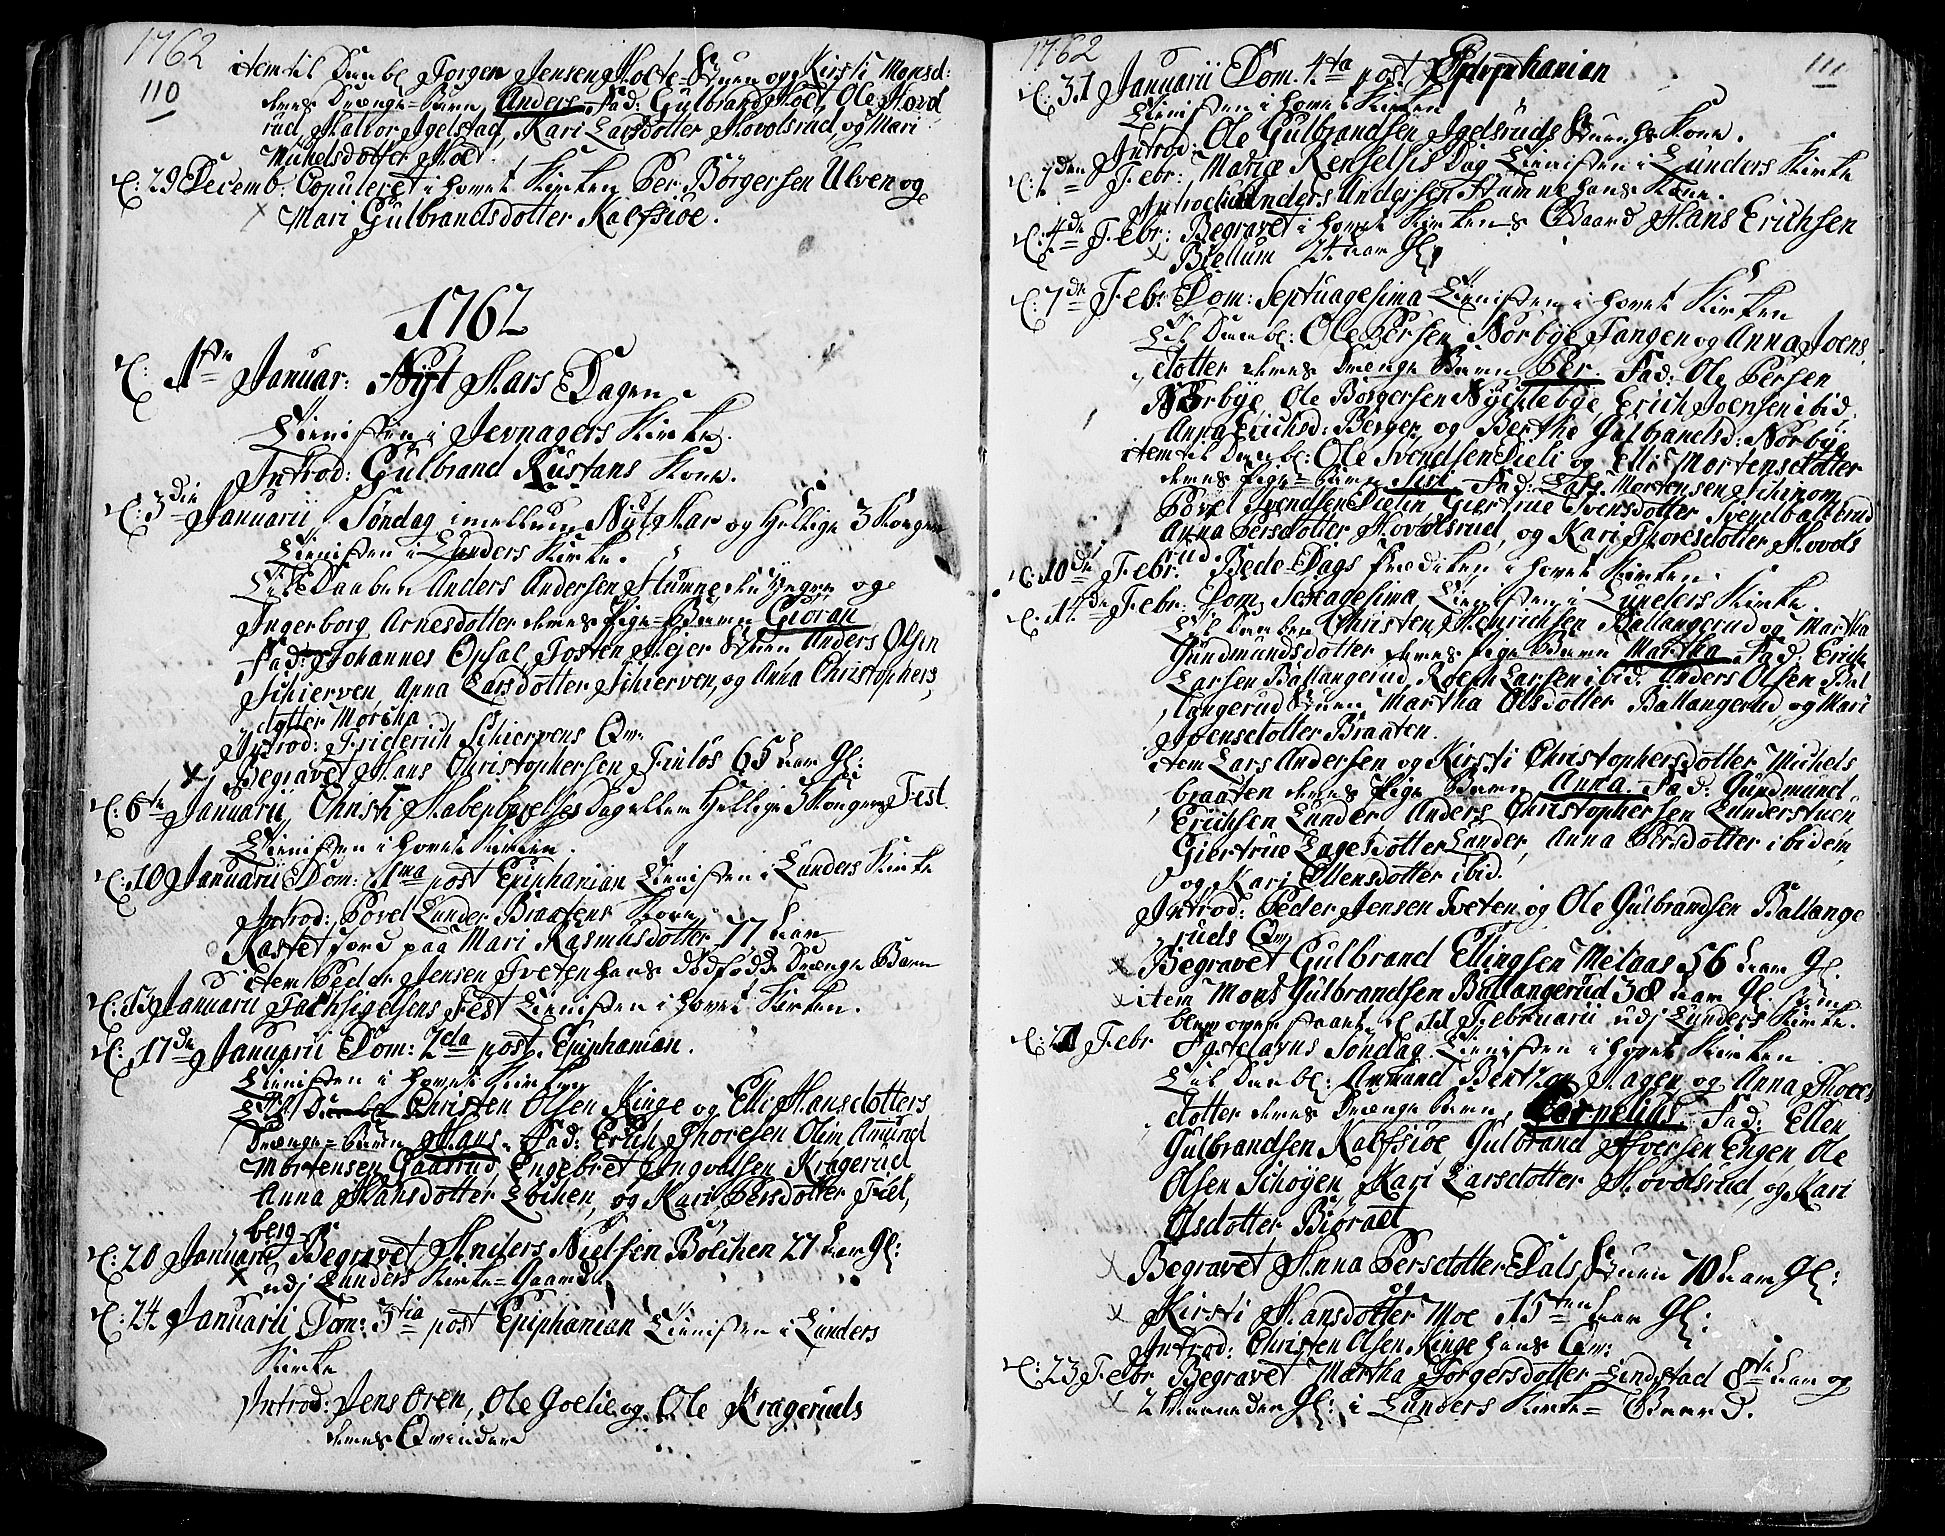 1762
110
item til Daabs Torgen Jensen Holte-Stuen og Kirsti Monsd:
deres Drænge-Barn, Anders Fad: Gulbrand Holt, Ole Hovd
rud, Halvor Igelstad, Kari Larsdotter Hovolsrud, og Mari
Michelsdotter Holt.
d: 29 Decemb: Copuleret i Hovet Kirken Per Börgersen Ulven og
Mari Gulbrandsdotter Kalfsiöe.
1762
d: 1ste Januar: Nyt Aars Dagen
Tienisten i Jevnagers Kirke.
Introd: Gulbrand Rustans Kone.
d: 3die Januarii, Søndag imellum Nyt Aar og Hellige 3 Konger
Tienisten i Lunders Kirke.
Til Daaben Anders Andersen Hamne den Yngre og
Ingerborg Arnesdotter deres Pige-Barn Giöran
Fad: Johannes Opsal, Tosten Mejer Stuen Anders Olsen
Schierven, Anna Larsdotter Schierven, og Anna Christophers,
dotter Morcka
Introd: Friderich Schiervens Qv:
Begravet Hans Christophersen Finlös 65 aar Gl:
d: 6te Januarii, Christi Aabenbarelses Dag eller Hellige 3 Kongers Fest
Tienisten i Hovet Kirken.
d: 10 Januarii Dom: 1ma post Epiphanian Tienisten i Lunders Kirke
Introd: Povel Lunder Braatens Kone
Kastet Jord paa Mari Rasmusdotter 77 aar
item Peder Jensen Tveten hans dødfødde Drænge Barn
d: 15 Januarii Tachsigelsens Fest Tienisten i Hovet Kirken.
d: 17de Januarii Dom: 2da post Epiphanian.
Tienisten i Hovet Kirken
Til Daaben Christen Olsen Kinge og Elli Hansdotters
Drænge-Barn Hans. Fad: Erich Thoresen Olim Amund
Mortensen Gaasrud, Engebret Ingvalsen Kragerud
Anna Hansdotter Löchen, og Kari Persdotter Fiel,
berg
d: 20 Januarii Begravet Anders Nielsen Bölchen 27 aar Gl:
udj Lunders Kirke-Gaard
d: 24 Januarii Dom: 3tia post Epiphanian Tienisten i Lunders
Kirke
Introd: Jens Oren, Ole Goelie og Ole Kragerüds
deres Qvinder
1762
111
d: 31 Januarii Dom. 4ta post Epiphanian
Tienisten i Hovet Kirken
Introd: Ole Gulbrandsen Igelsruds Stuen hs Kone.
d: 2den Febr: Mariæ Renselsis Dag Tienisten i Lunders Kirke
Introdu: Anders Andersen Hamne hans Kone.
d: 4de Febr: Begravet i Hovet Kirkens Gaard Hans Erichsen
Biellum 24 aar Gl:
d: 7de Febr: Dom: Septuagesima Tienisten i Hovet Kirken
Til Daabs: Ole Persen Norbye Tangen og Anna Joens
dotter deres Drænge Barn Per. Fad: Ole Persen
Norbye Ole Börgersen Nychlebye, Erich Joensen ibid.
Anna Erichsd: Bergen og Berthe Gulbrandsd: Norbye
item til Daabs: Ole Svendsen Dieli og Elli Mortensdotter
deres Pige-Barn Siri. Fad: Lars Mortensen Schinom
Povel Svendsen Dielin Giertrue Svensdotter Svendballerud
Anna Persdotter Hovdolsrud, og Kari Thoresdotter Hovols
rud.
d: 10de Febr. Bede-Dags Prædiken i Hovet Kirken.
d: 14de Febr: Dom, Sexagesima, Tienisten i Lunders Kirke.
Til Daaben Christen Henrichsen Ballangerud og Martha
Gundmundsdotter deres Pige Barn Martha. Fad. Erich
Larsen Ballangerud, Roeph Larsen ibid. Anders Olsen Bal
langerud Stuen Martha Olsdotter Ballangerud, og Mari
Joensdotter Braaten.
item Lars Andersen og Kirsti Christophersdotter Michels
braaten deres Pige Barn Anna. Fad: Gundmund
Erichsen Lunder Anders Christophersen Lunderstuen
Giertrue Lagesdotter Lunder, Anna Persdotter ibidem,
og Kari Ellensdotter ibid.
Introd: Peder Jensen Tveten og Ole Gulbrandsen Ballange
ruds Qv:
Begravet Gulbrand Ellingsen Melaas 56 aar Gl.
item Mons Gulbrandsen Ballangerud 38 aar Gl.
d 11 Februarii udj Lunders Kirke.
d: 21 Febr Fastelavns Søndag. Tienisten i Hovet Kirken
Til Daabs: Ammand Bentzon Hagen og Anna Thoers
dotter deres Drænge Barn, Cornelius. Fad: Ellen
Gulbrandsen Kalfsiöe, Gulbrand Iversen Engen Ole
Olsen Schöyen Kari Larsdotter Hovolsrud, og Kari
Olsdotter Biöraet
Begravet Anna Persdotter Dals Stuen 70 aar Gl:
Kirsti Hansdotter Moe 15ten aar Gl:
Introd: Christen Olsen Kinge hans Qv:
d: 23 Febr Begravet Martha Torgersdotter Lindstad 8te aar og
2 Maaneder Gl: i Lunders Kirke-Gaard.